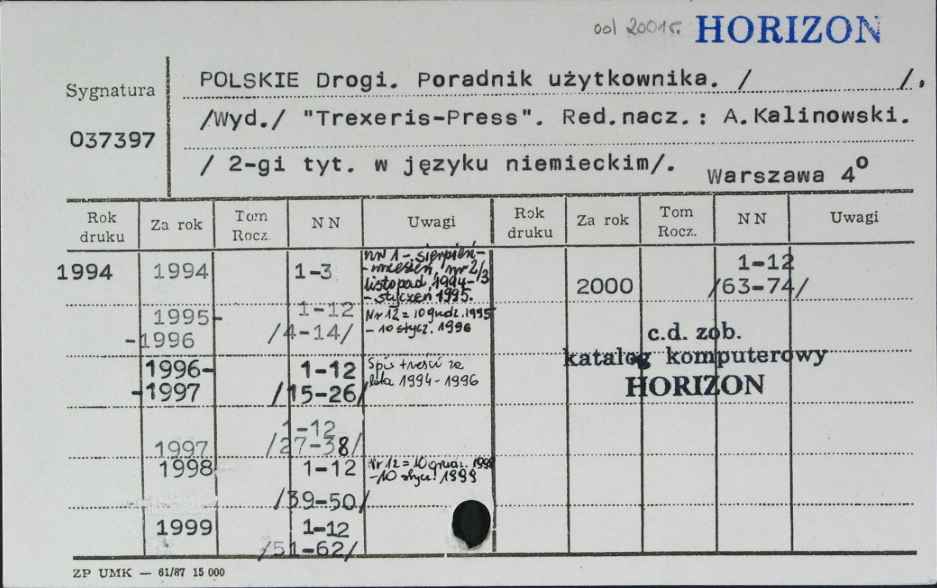 od 2001r. HORIZON
Sygnatura
037397
POLSKIE Drogi. Poradnik użytkownika. / /.
/Wyd./ "Trexeris-Press". Red.nacz.: A.Kalinowski.
/ 2-gi tyt. w języku niemieckim/.
Warszawa 4°
Rok druku Za rok Tom Rocz. NN Uwagi Rok druku Za rok Tom Rocz. NN Uwagi
1994 1994 1-3
NN 1 - sierpień-
-wrzesień, nr 2/3
listopad 1994-
- styczeń 1995.
2000 1-12
/63-74/
1995-
-1996
1-12
/4-14/
Nr 12 = 10 grudz. 1995
- 10 stycz. 1996
1996-
-1997
1-12
/15-26/
Spis treści za
lata 1994-1996
c.d. zob.
katalog komputerowy
HORIZON
1997 1-12
/27-38/
1998 1-12
/39-50/
Nr 12 = 10 grudz. 1998
-10 stycz. 1999
1999 1-12
/51-62/
ZP UMK — 61/87 15 000